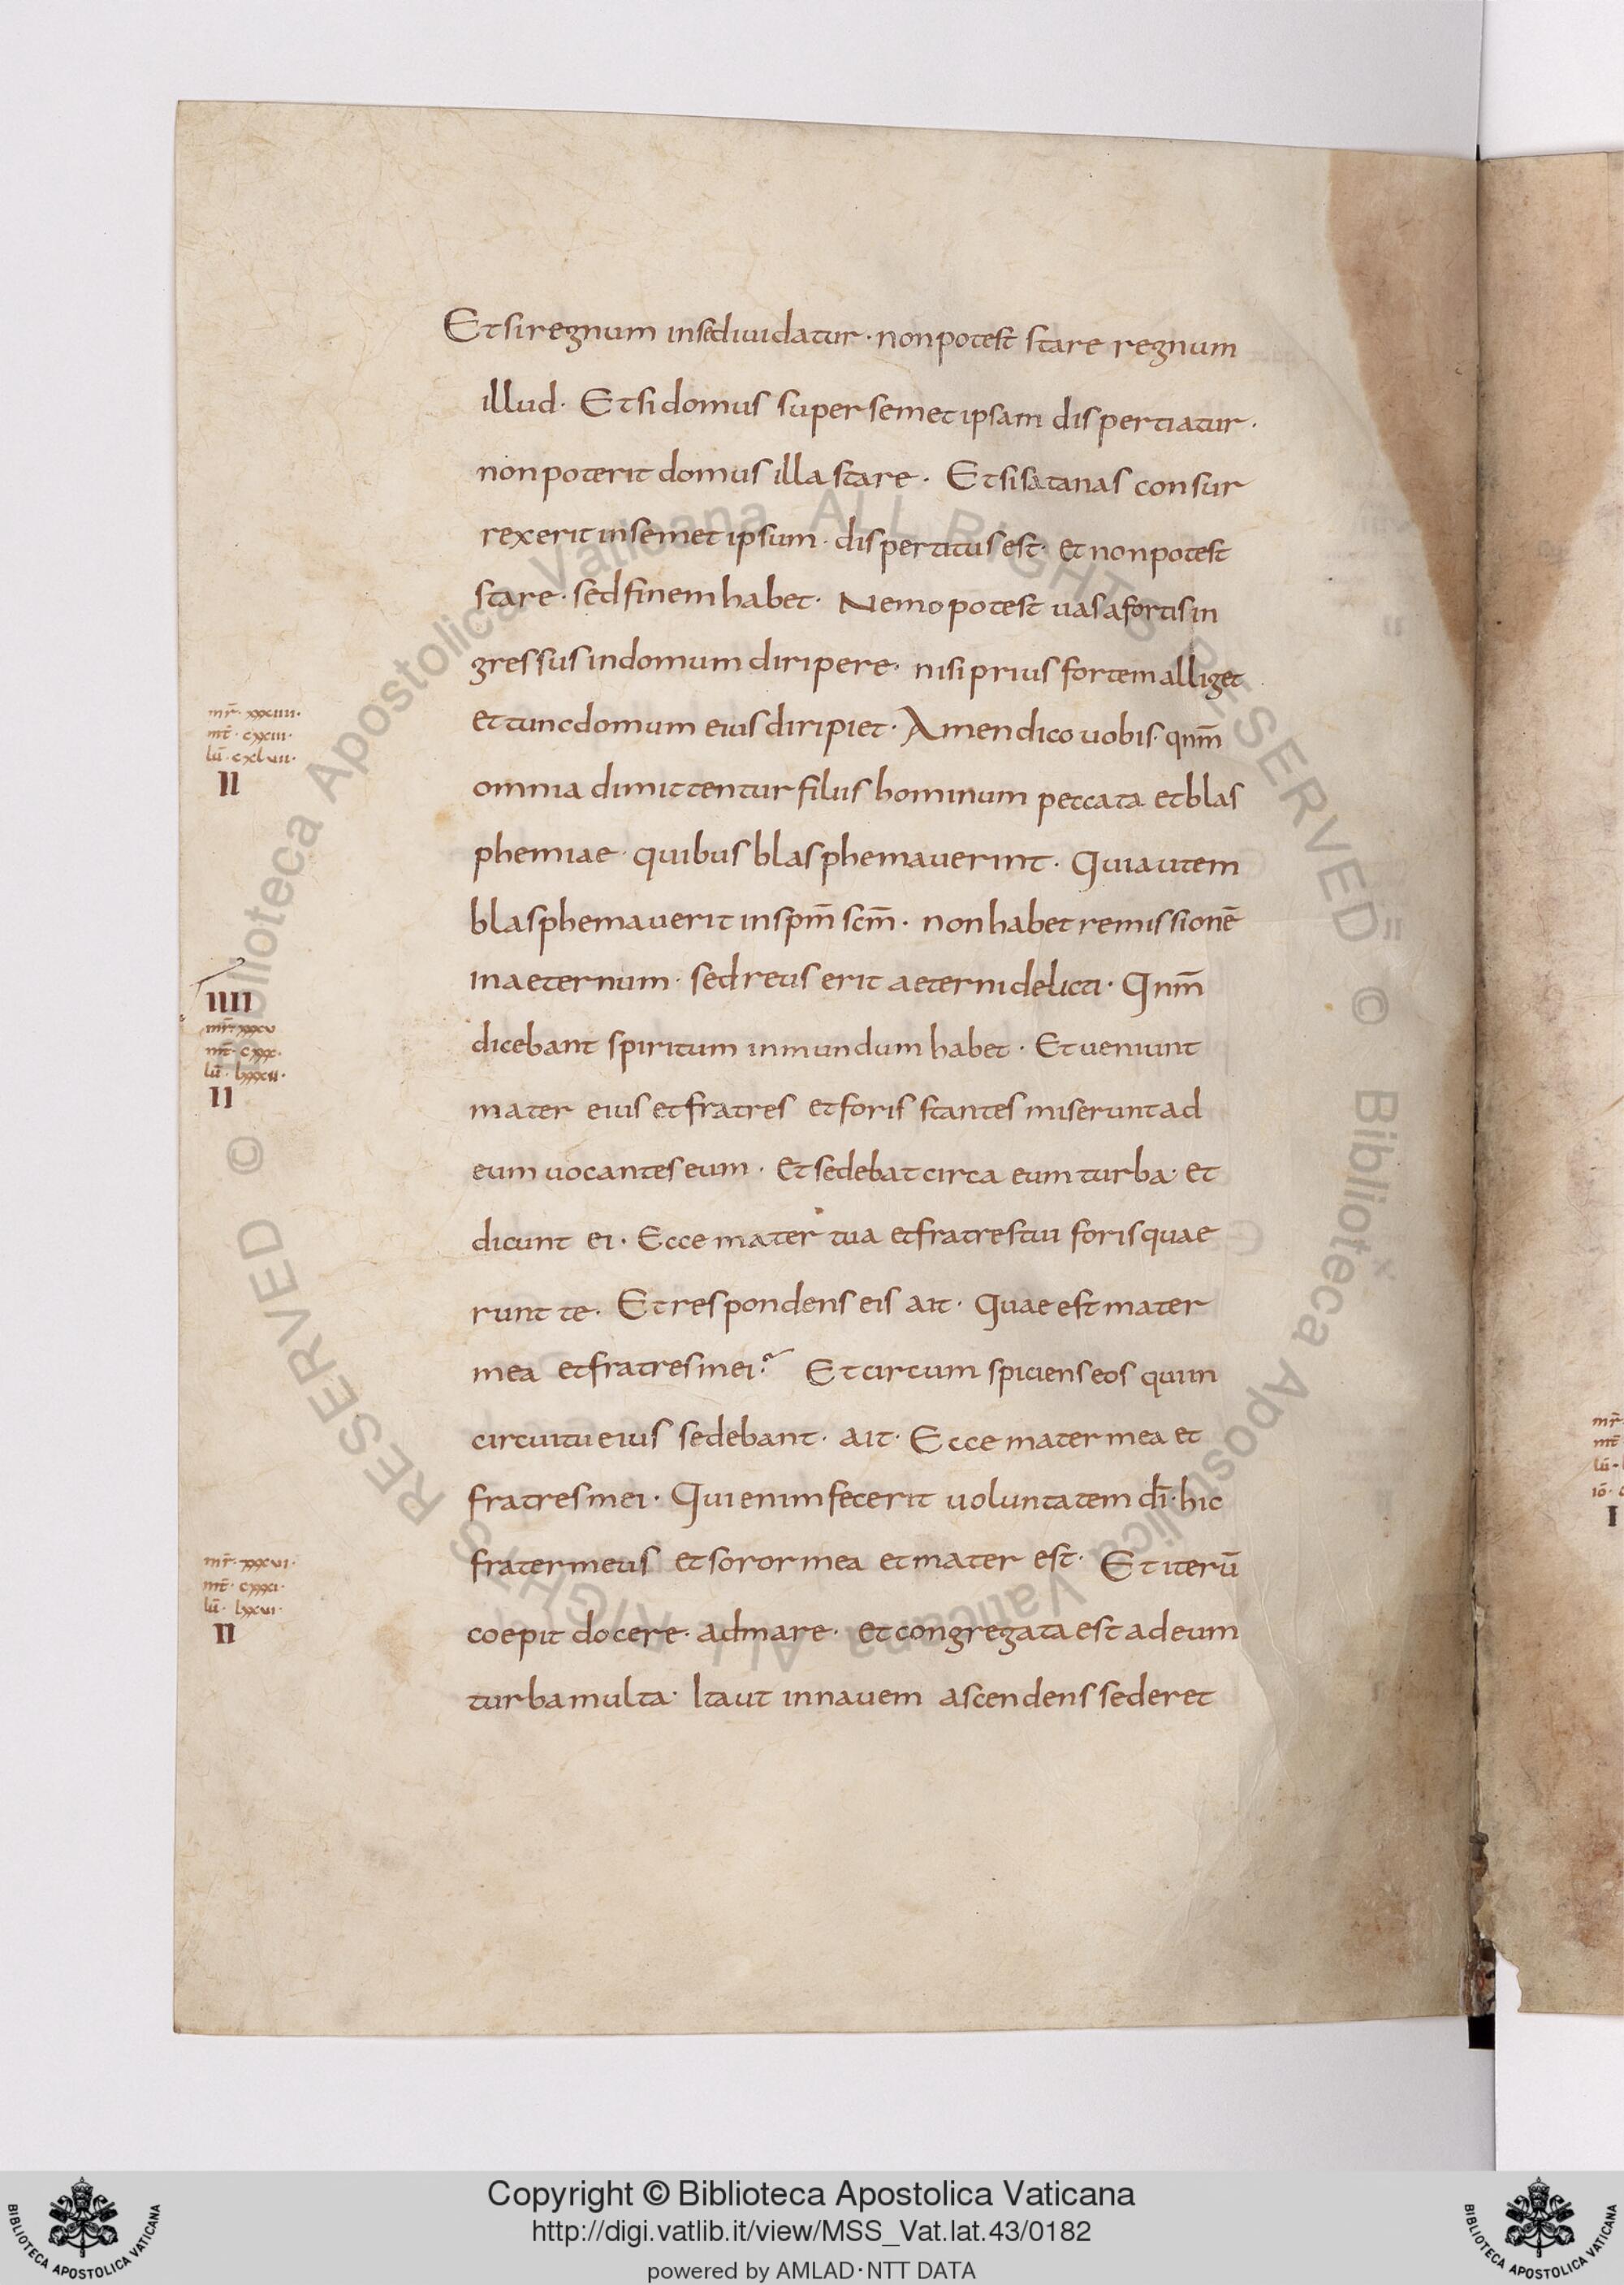 Et si regnum in se diuidatur · non potest stare regnum
illud · Et si domus super semet ipsam dispertiatur ·
non poterit domus illa stare · Et si satanas consur
rexerit in semet ipsum · dispertitus est · et non potest
stare · sed finem habet · Nemo potest uasa fortis in
gressus in domum diripere · nisi prius fortem alliget
et tunc domum eius diripiet · Amen dico uobis qnm̄
omnia dimittentur filiis hominum peccata et blas
phemiae · quibus blasphemauerint · Qui autem
blasphemauerit in spm̄ scm̄ · non habet remissionē
in aeternum · sed reus erit aeterni delicti · Qnm̄
dicebant spiritum inmundum habet · Et ueniunt
mater eius et fratres et foris stantes miserunt ad
eum uocantes eum · et sedebat circa eum turba · et
dicunt ei · Ecce mater tua et fratres tui foris quae
runt te · Et respondens eis ait · Quae est mater
mea et fratres mei? Et circumspiciens eos qui in
circuitu eius sedebant · ait · Ecce mater mea et
fratres mei · Qui enim fecerit uoluntatem dī · hic
frater meus et soror mea et mater est · Et iterū
coepit docere · ad mare · et congregata est ad eum
turba multa · Ita ut in nauem ascendens sederet
mr̄ · xxxiiii ·
mt̄ · cxxiii ·
lū · cxlvii ·
II
IIII
mr̄ · xxxv
mt̄ · cxxx ·
lū · lxxxii ·
II
mr̄ · xxxvi ·
mt̄ · cxxxi ·
lū · lxxvi ·
II
mr̄
mt̄
lū ·
iō ·
I
© Biblioteca Apostolica Vaticana ALL RIGHTS RESERVED
© Biblioteca Apostolica Vaticana ALL RIGHTS RESERVED
BIBLIOTECA APOSTOLICA VATICANA
Copyright © Biblioteca Apostolica Vaticana
http://digi.vatlib.it/view/MSS_Vat.lat.43/0182
powered by AMLAD·NTT DATA
BIBLIOTECA APOSTOLICA VATICANA